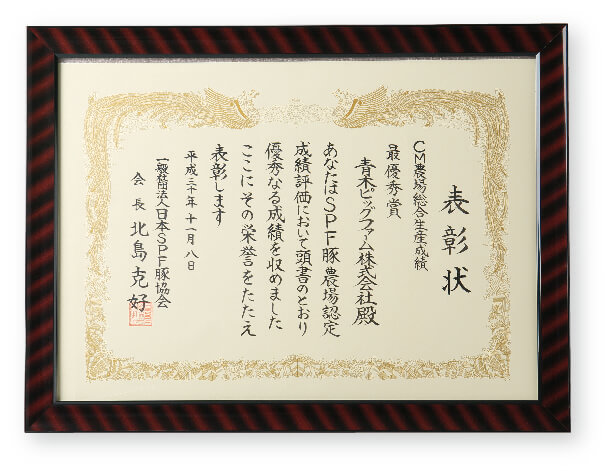 表彰状
CM農場総合生産成績
最優秀賞
青木ピッグファーム株式会社殿
あなたはSPF豚農場認定
成績評価において頭書のとおり
優秀なる成績を収めました
ここにその栄誉をたたえ
表彰します
平成三十年十一月八日
一般社団法人日本SPF豚協会
会長 北島克好